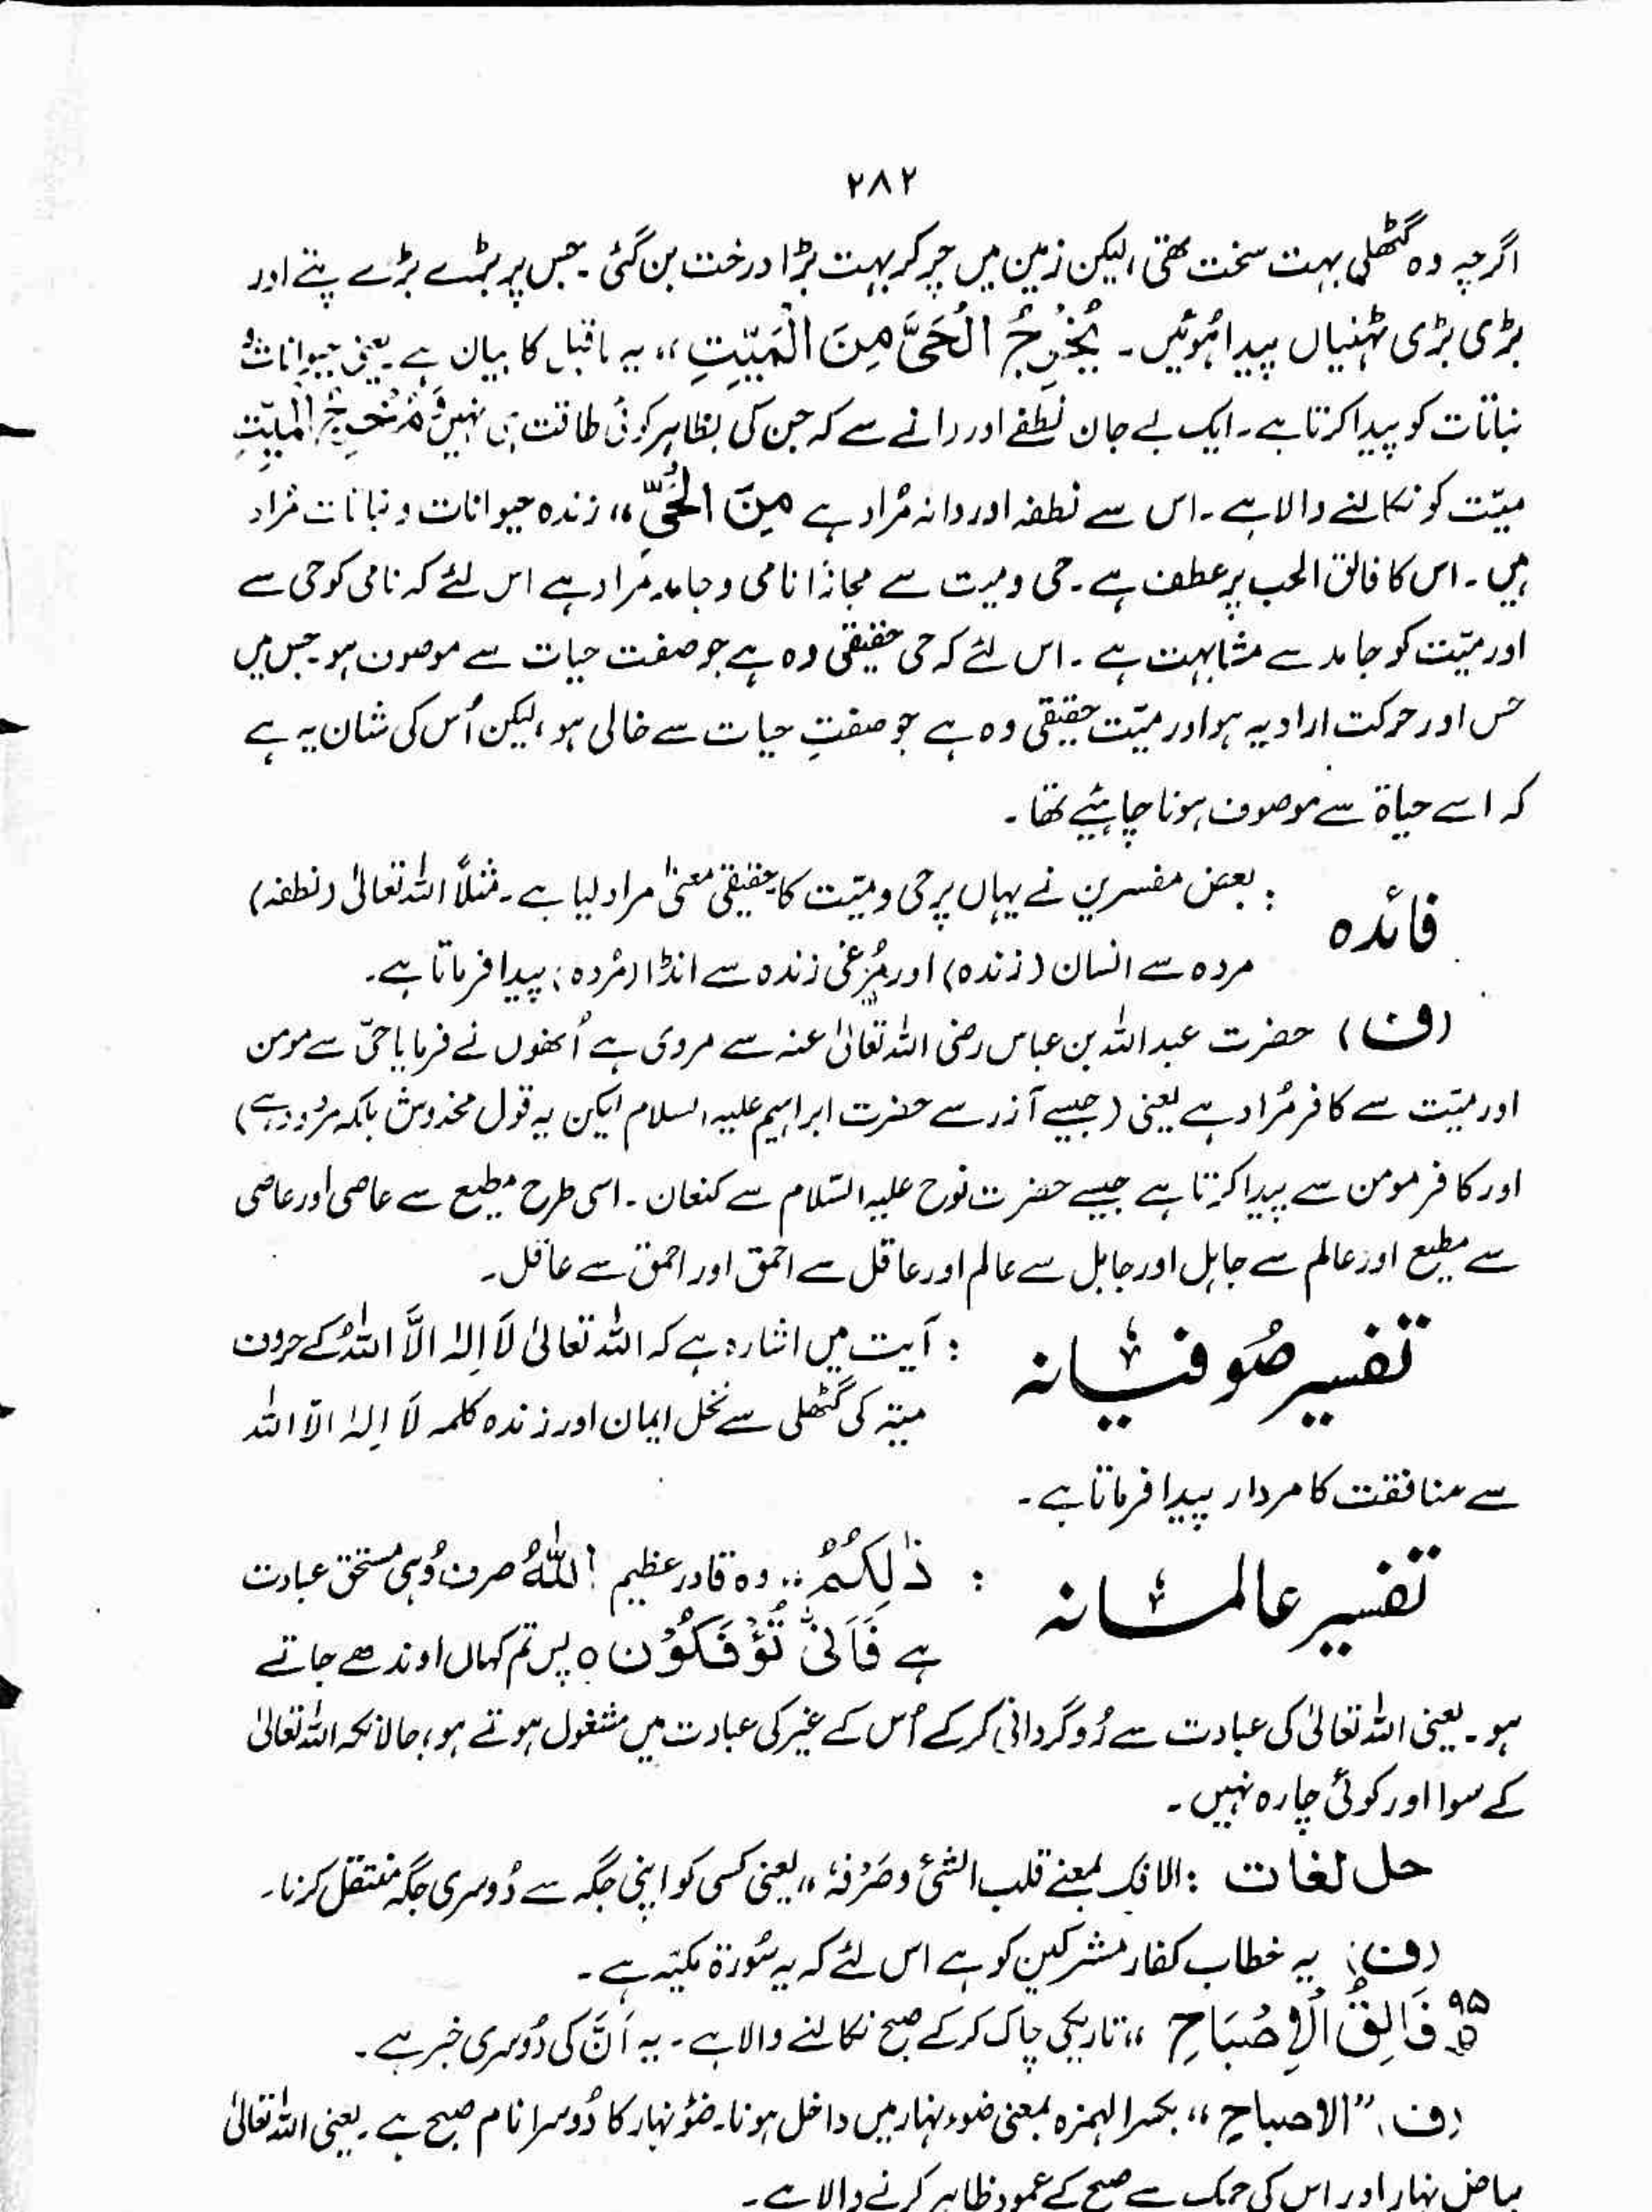 ۲۸۲
اگرچہ وہ گٹھلی بہت سخت تھی، لیکن زمین میں چر کر بہت بڑا درخت بن گئی۔ جس پر بڑے بڑے پتے اور
بڑی بڑی ٹہنیاں پیدا ہُوئیں۔ یُخْرِجُ الْحَیَّ مِنَ الْمَیِّتِ ،، یہ ماقبل کا بیان ہے یعنی حیوانات و
نباتات کو پیدا کرتا ہے۔ ایک بے جان نطفے اور دانے سے کہ جن کی بظاہر کوئی طاقت ہی نہیں وَمُخْرِجُ الْمَیِّتِ
میّت کو نکالنے والا ہے۔ اس سے نطفہ اور دانہ مُراد ہے مِنَ الْحَیِّ ،، زندہ حیوانات و نباتات مُراد
ہیں۔ اس کا فالق الحب پر عطف ہے۔ حی و میت سے مجازاً نامی و جامد مُراد ہے اس لئے کہ نامی کو حی سے
اور میّت کو جامد سے مشابہت ہے۔ اس لئے کہ حی حقیقی وہ ہے جو صفت حیات سے موصوف ہو جس میں
حس اور حرکت ارادیہ ہو اور میّت حقیقی وہ ہے جو صفتِ حیات سے خالی ہو، لیکن اُس کی شان یہ ہے
کہ اسے حیاۃ سے موصوف ہونا چاہئیے تھا۔
فائدہ : بعض مفسرین نے یہاں پر حی و میّت کا حقیقی معنیٰ مراد لیا ہے۔ مثلاً اللہ تعالیٰ (نطفہ)
مردہ سے انسان (زندہ) اور مُرغی زندہ سے انڈا (مُردہ) پیدا فرماتا ہے۔
(ف) حضرت عبداللہ بن عباس رضی اللہ تعالیٰ عنہ سے مروی ہے اُنھوں نے فرمایا حیّ سے مومن
اور میّت سے کافر مُراد ہے یعنی (جیسے آزر سے حضرت ابراہیم علیہ السلام لیکن یہ قول مخدوش بلکہ مردود ہے)
اور کافر مومن سے پیدا کرتا ہے جیسے حضرت نوح علیہ السّلام سے کنعان۔ اسی طرح مطیع سے عاصی اور عاصی
سے مطیع اور عالم سے جاہل اور جاہل سے عالم اور عاقل سے احمق اور احمق سے عاقل۔
تفسیر صُوفیانہ : آیت میں اشارہ ہے کہ اللہ تعالیٰ لَا اِلٰہَ اِلَّا اللّٰہُ کے حروف
میتہ کی گٹھلی سے نخل ایمان اور زندہ کلمہ لَا اِلٰہَ الّا اللہ
سے منافقت کا مردار پیدا فرماتا ہے۔
تفسیر عالمانہ : ذٰلِکُمُ ،، وہ قادر عظیم اللّٰہُ صرف وُہی مستحق عبادت
ہے فَاَنّٰی تُؤْفَکُوْنَ ہ پس تم کہاں اوندھے جاتے
ہو۔ یعنی اللہ تعالیٰ کی عبادت سے رُوگردانی کرکے اُس کے غیر کی عبادت میں مشغول ہوتے ہو، حالانکہ اللہ تعالیٰ
کے سوا اور کوئی چارہ نہیں۔
حل لغات : الافک بمعنے قلب الشئ و صَرْفہٗ ،، یعنی کسی کو اپنی جگہ سے دُوسری جگہ منتقل کرنا۔
(ف) یہ خطاب کفار مشرکین کو ہے اس لئے کہ یہ سُورۃ مکیّہ ہے۔
۹۵ فَالِقُ الْاِصْبَاحِ ،، تاریکی چاک کرکے صبح نکالنے والا ہے۔ یہ اَنَّ کی دُوسری خبر ہے۔
(ف) ”الاصباح“ بکسر الہمزہ بمعنی ضوء نہار میں داخل ہونا۔ ضؤ نہار کا دُوسرا نام صبح ہے۔ یعنی اللہ تعالیٰ
بیاض نہار اور اس کی چمک سے صبح کے عمود ظاہر کرنے والا ہے۔